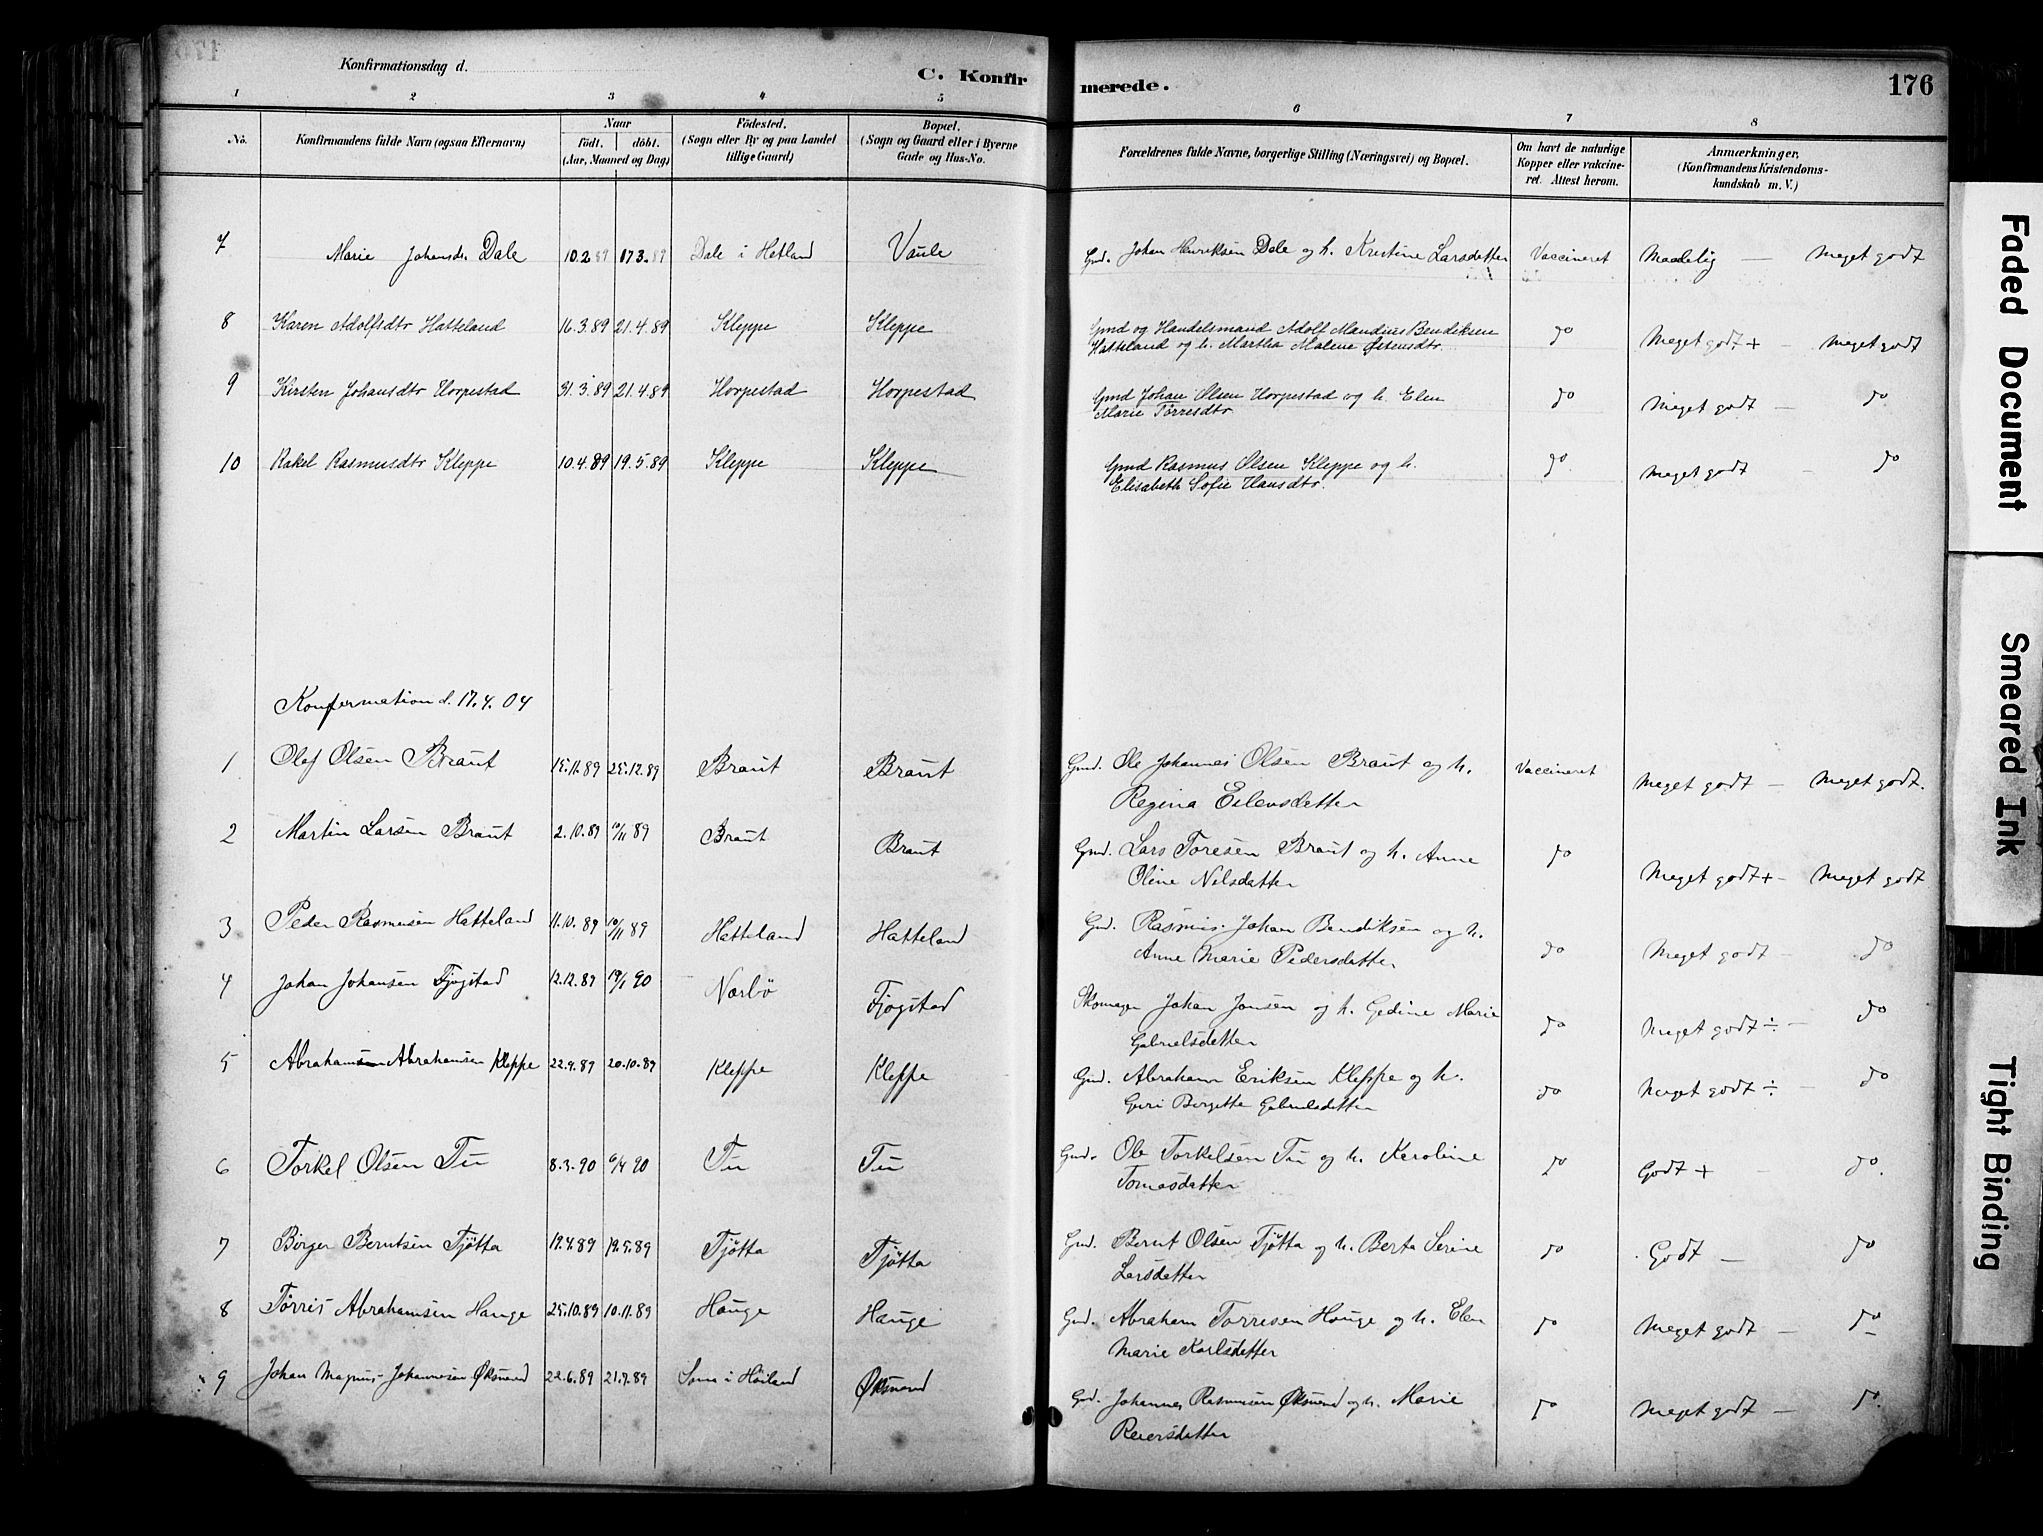 Konfirmationsdag d.
C. Konfirmerede.
176
1 2 3 4 5 6 7 8
No.
Konfirmandens fulde Navn (ogsaa Efternavn)
Naar
födt. döbt.
(Aar, Maaned og Dag)
Födested.
(Sogn eller By og paa Landet
tillige Gaard)
Bopæl.
(Sogn og Gaard eller i Byerne
Gade og Hus-No.
Forældrenes fulde Navne, borgerlige Stilling (Næringsvei) og Bopæl.
Om havt de naturlige
Kopper eller vakcine-
ret. Attest herom.
Anmærkninger,
(Konfirmandens Kristendoms-
kundskab m. V.)
7 Marie Johansdr. Dale 10.2.89 17.3.89 Dale i Hetland Vaule Gmd. Johan Henriksen Dale og h. Kristine Larsdatter Vaccineret Maadelig — Meget godt
8 Karen Adolfsdtr Hatteland 16.3.89 21.4.89 Kleppe Kleppe Gmd og Handelsmand Adolf Mandius Bendiksen do Meget godt + — Meget godt
Hatteland og h. Martha Malene Østensdtr.
9 Kirsten Johansdtr Horpestad 31.3.89 21.4.89 Horpestad Horpestad Gmd Johan Olsen Horpestad og h. Elen do Meget godt — do
Marie Tørresdtr.
10 Rakel Rasmusdtr Kleppe 10.4.89 19.5.89 Kleppe Kleppe Gmd Rasmus Olsen Kleppe og h. do Meget godt — do
Elisabeth Sofie Hansdtr.
Konfermation d. 17.4.04
1 Olaf Olsen Braut 15.11.89 25.12.89 Braut Braut Gmd. Ole Johannes Olsen Braut og h. Vaccineret Meget godt — Meget godt.
Regina Eilensdatter
2 Martin Larsen Braut 2.10.89 10/11 89 Braut Braut Gmd. Lars Toresen Braut og h. Anne do Meget godt + — Meget godt
Oline Nilsdatter
3 Peder Rasmusen Hatteland 11.10.89 10/11 89 Hatteland Hatteland Gmd. Rasmus Johan Bendiksen og h. do Meget godt — do
Anne Marie Pedersdatter
4 Johan Johansen Fjogstad 12.12.89 19/1 90 Nærbö Fjogstad Skomager Johan Jonsen og h. Gedine Marie do Meget godt ÷ — do
Gabrielsdatter
5 Abraham Abrahamsen Kleppe 22.9.89 20.10.89 Kleppe Kleppe Gmd. Abraham Eriksen Kleppe og h. do Meget godt ÷ — do
Guri Birgette Gabrielsdatter
6 Torkel Olsen Tu 8.3.90 6/4 90 Tu Tu Gmd. Ole Torkelsen Tu og h. Karoline do Godt + — do.
Tomasdatter
7 Börger Berntsen Tjøtta 19.4.89 19.5.89 Tjøtta Tjøtta Gmd. Bernt Olsen Tjøtta og h. Berta Serine do Godt — do
Larsdatter
8 Tørris Abrahamsen Hauge 25.10.89 10.11.89 Hauge Hauge Gmd. Abraham Tørresen Hauge og h. Elen do Meget godt — do
Marie Karlsdatter
9 Johan Magnus Johannesen Øksnevad 22.6.89 21.7.89 Soma i Höiland Øksnevad Gmd. Johannes Rasmusen Øksnevad og h. Marie do Meget godt — do.
Reiersdatter
Faded Document
Smeared Ink
Tight Binding